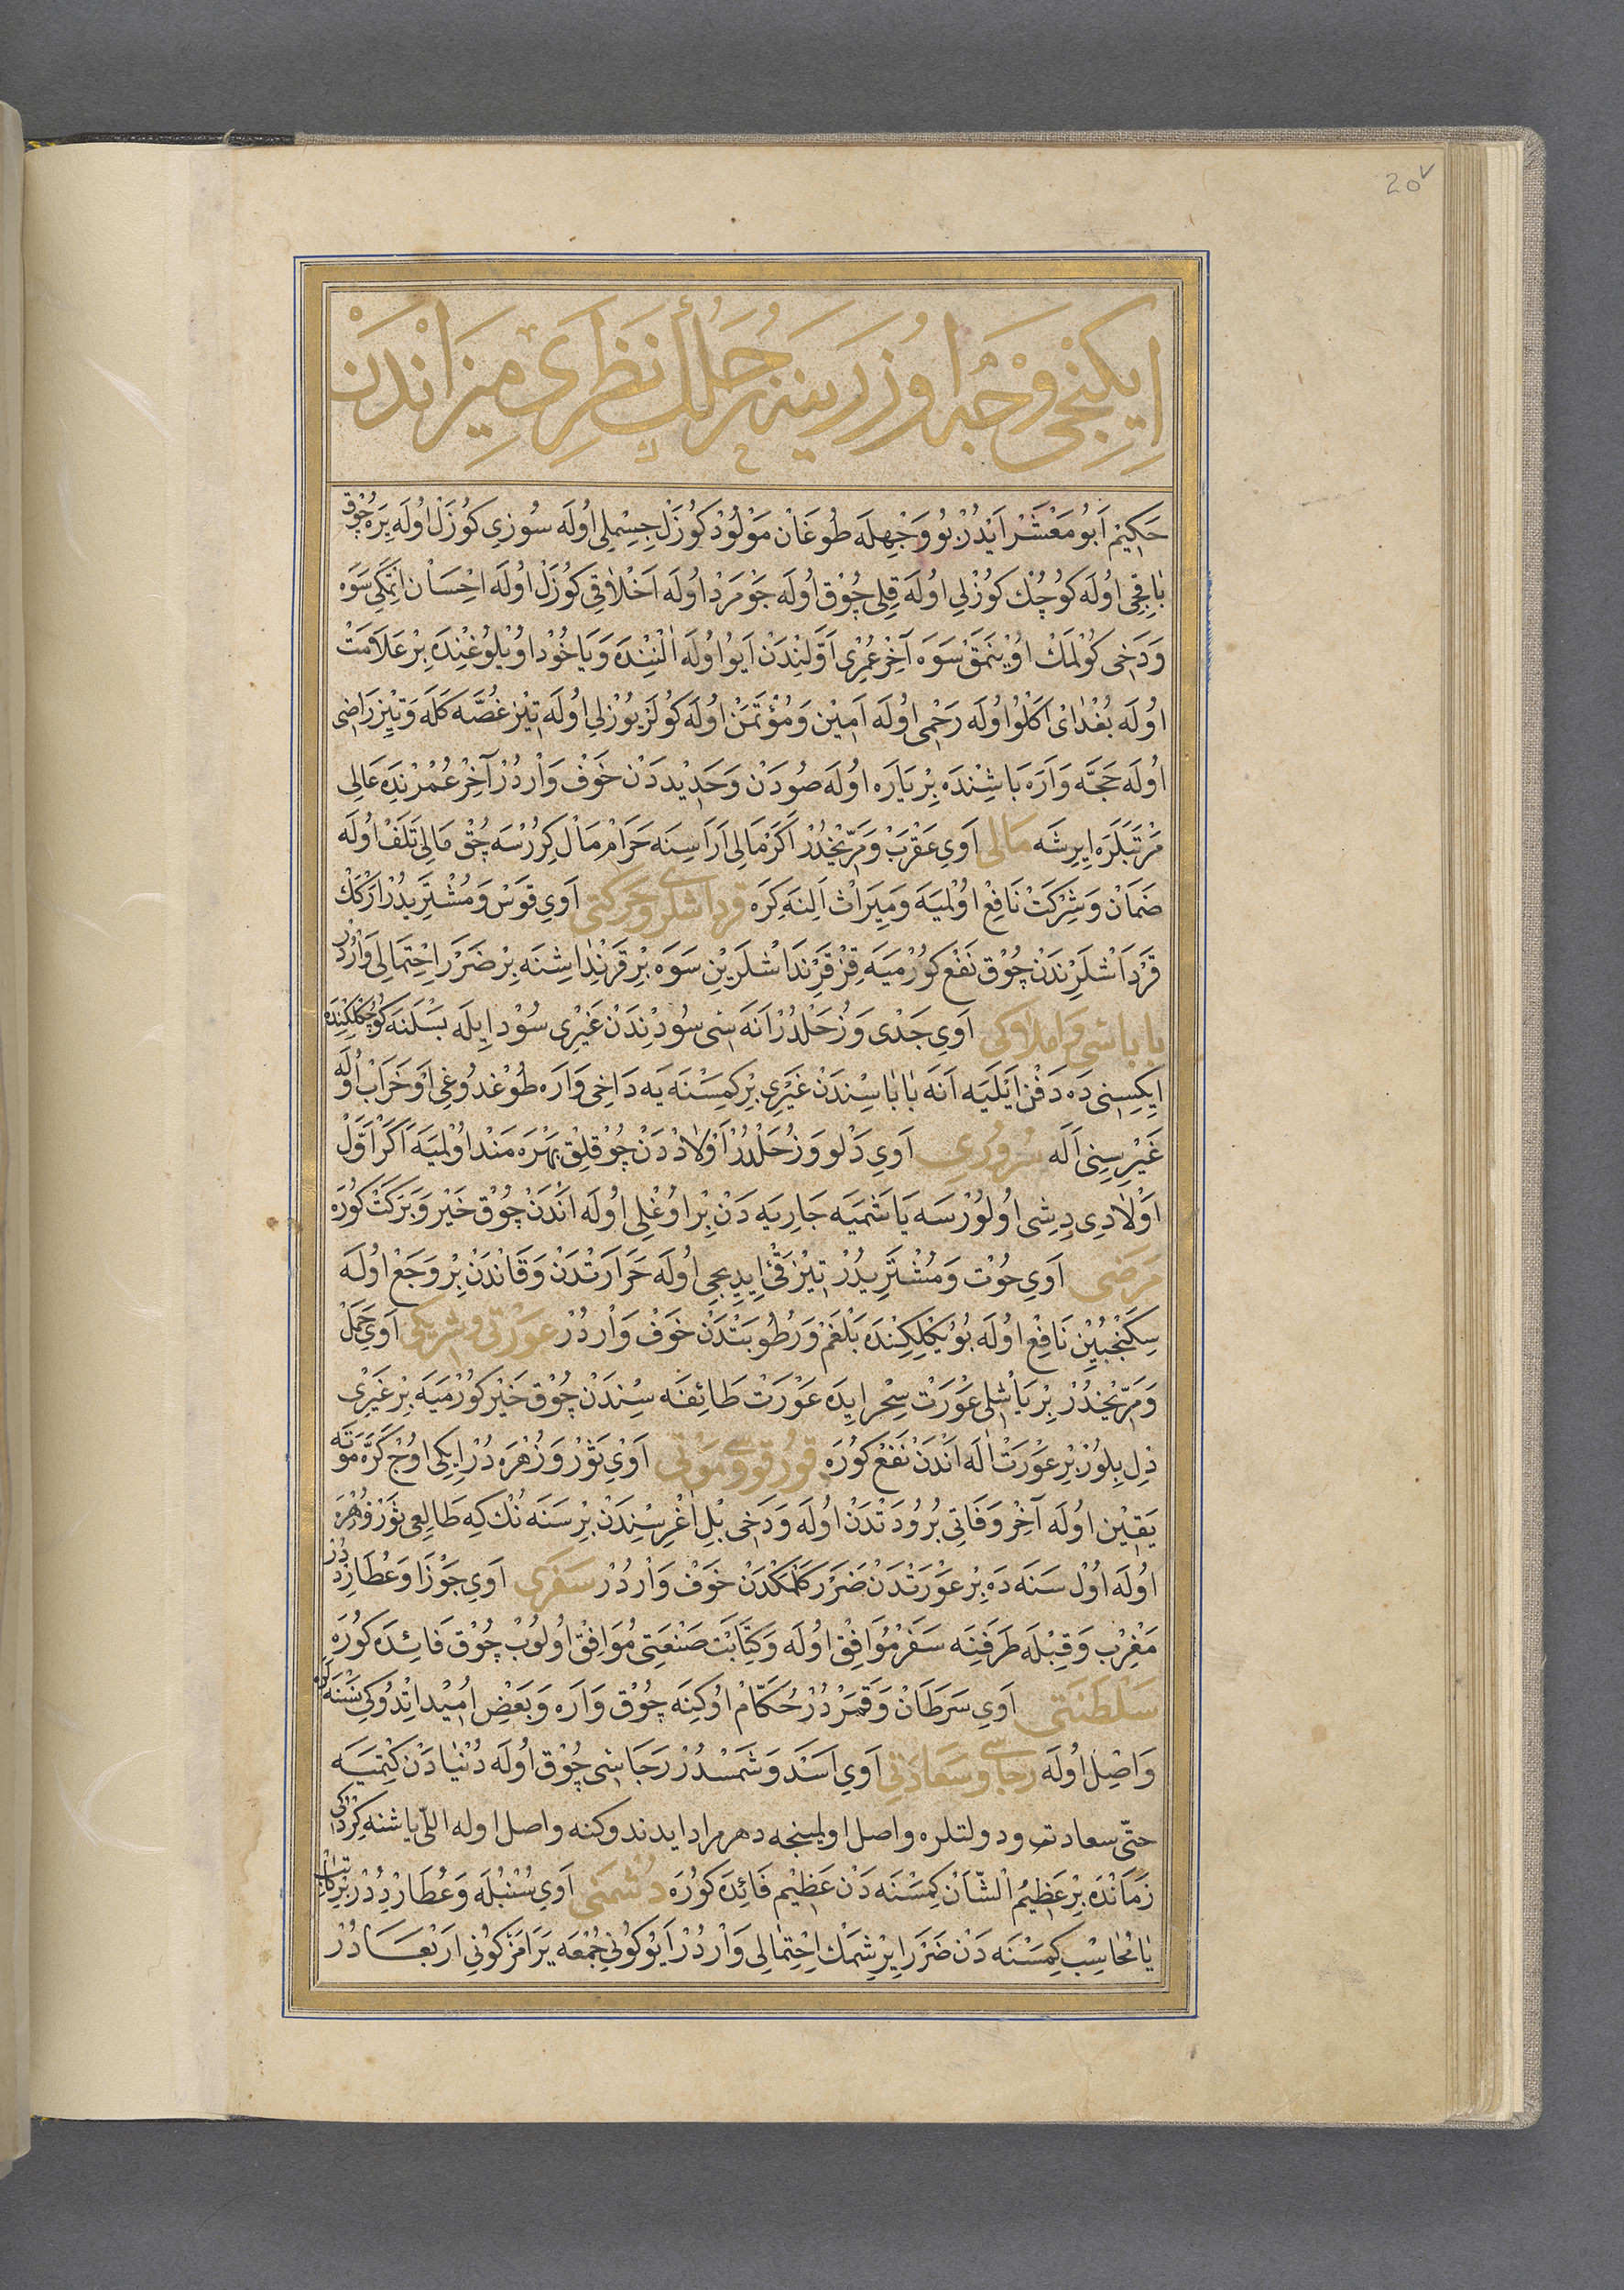 20v
اِيكِنْجِى وَجْه اُوزَرِينَه زُحَلُك نَظَرِى مِيزَانْدَنْ
حَكِيمْ اَبُو مَعْشَرْ اَيْدُرْ بُو وَجْهِلَه طُوغَانْ مَوْلُودْ كُوزَلْ جِسِمْلِى اُولَه سُوزِى كُوزَلْ اُولَه يَرَه چُوقْ
بَاقِجِى اُولَه كُوچُكْ كُوزْلِى اُولَه قِلِى چُوقْ اُولَه جَوْمَرْدْ اُولَه اَخْلَاقِى كُوزَلْ اُولَه اِحْسَانْ اِتْمَكِى سَوَه
وَدَخِى كُولْمَكْ اُوْينَمَقْ سَوَه آخِرْ عُمْرِى اَوَّلِنْدَنْ اَيُو اُولَه اَلْنِنْدَه وَيَاخُودْ اُويْلُوغِنْدَه بِرْ عَلَامَتْ
اُولَه بُغْدَاىْ اَكْلُو اُولَه رَحْمِى اُولَه اَمِينْ وَمُؤْتَمَنْ اُولَه كُولَرْ يُوزْلِى اُولَه تِيزْ غُصَّه كَلَه وَتِيزْ رَاضِى
اُولَه حَجَّه وَارَه بَاشِنْدَه بِرْ يَارَه اُولَه صُودَنْ وَحَدِيدْدَنْ خَوْفْ وَارْدُرْ آخِرْ عُمْرِنْدَه عَالِى
مَرْتَبَلَرَه اِيرِشَه مَالِى اَوِى عَقْرَبْ وَمَرِّيخْدُرْ اَكَرْ مَالِى اَرَاسِنَه حَرَامْ مَالْ كِرُرْسَه چُقْ مَالِى تَلَفْ اُولَه
ضَمَانْ وَشِرْكَتْ نَافِعْ اُولْمَيَه وَمِيرَاثْ اَلِنَه كِرَه قرداشلرى وحركتى اَوِى قَوْسْ وَمُشْتَرِيدُرْ اَرْكَكْ
قَرْدَاشْلَرِنْدَنْ چُوقْ نَفْعْ كُورْمَيَه قِزْ قَرِنْدَاشْلَرِينْ سَوَه بِرْ قَرِنْدَاشِنَه بِرْ ضَرَرْ اِحْتِمَالِى وَارْدُرْ
باباسى واملاكى اَوِى جَدْى وَزُحَلْدُرْ اَنَه سِى سُودِنْدَنْ غَيْرِى سُودْ اِيلَه بَسْلَنَه كُوچُكْلِكِنْدَه
اِيكِسِنِى دَه دَفْنْ اَيْلَيَه اَنَه بَابَاسِنْدَنْ غَيْرِى بِرْ كِمْسَنَه يَه دَاخِى وَارَه طُوغْدُوغِى اَوْ خَرَابْ اُولَه
غَيْرِسِنِى اَلَه سُرُورِى اَوِى دَلْو وَزُحَلْدُرْ اَوْلَادْدَنْ چُوقْلِقْ بَهْرَه مَنْدْ اُولْمَيَه اَكَرْ اَوَّلْ
اَوْلَادِى دِيشِى اُولُورْسَه يَاشَمَيَه جَارِيَه دَنْ بِرْ اُوغْلِى اُولَه اَنْدَنْ چُوقْ خَيْر وَبَرَكَتْ كُورَه
مَرَضِى اَوِى حُوتْ وَمُشْتَرِيدُرْ تِيزْ قَىْ اِيدِيجِى اُولَه حَرَارَتْدَنْ وَقَانْدَنْ بِرْ وَجَعْ اُولَه
سِكَنْجُبِينْ نَافِعْ اُولَه بُويُكْلِكِنْدَه بَلْغَمْ وَرُطُوبَتْدَنْ خَوْفْ وَارْدُرْ عورتى وشريكى اَوِى حَمَلْ
وَمَرِّيخْدُرْ بِرْ يَاشْلِى عَوْرَتْ سِحْر اِيدَه عَوْرَتْ طَائِفَه سِنْدَنْ چُوقْ خَيْر كُورْمَيَه بِرْ غَيْرِى
دِلْ بِلُورْ بِرْ عَوْرَتْ اَلَه اَنْدَنْ نَفْعْ كُورَه قورقوسى وموتى اَوِى ثَوْرْ وَزُهْرَه دُرْ اِيكِى اُوچْ كَرَّه مَوْتَه
يَقِينْ اُولَه آخِرْ وَفَاتِى بُرُودَتْدَنْ اُولَه وَدَخِى بَلْ اَغْرِيسِنْدَنْ بِرْ سَنَه نُكْ كِه طَالِعِى ثَوْر وَزُهْرَه
اُولَه اُولْ سَنَه دَه بِرْ عَوْرَتْدَنْ ضَرَرْ كَلْمَكْدَنْ خَوْفْ وَارْدُرْ سَفَرِى اَوِى جَوْزَا وَعُطَارِدْدُرْ
مَغْرِبْ وَقِبْلَه طَرَفِنَه سَفَرْ مُوَافِقْ اُولَه وَكِتَابَتْ صَنْعَتِى مُوَافِقْ اُولُوبْ چُوقْ فَائِدَه كُورَه
سَلْطَنَتِى اَوِى سَرَطَانْ وَقَمَرْدُرْ حُكَّامْ اُوكِنَه چُوقْ وَارَه وَبَعْضِ اُمِيدْ اِتْدُوكِى نَسْنَه لَرَه
وَاصِلْ اُولَه رجاسى وسَعَادَتِى اَوِى اَسَدْ وَشَمْسْدُرْ رَجَاسِى چُوقْ اُولَه دُنْيَادَنْ كِتْمَيَه
حتّى سعادت ودولتلره واصل اولمينجه دهر مراد ايدندوكنه واصل اوله اللّى ياشنه كِرْدُكِى
زَمَانْدَه بِرْ عَظِيمُ الْشَّانْ كِمْسَنَه دَنْ عَظِيمْ فَائِدَه كُورَه دُشْمَنِى اَوِى سُنْبُلَه وَعُطَارِدْدُرْ بِرْ كَاتِبْ
يَا مُحَاسِبْ كِمْسَنَه دَنْ ضَرَرْ اِيرِشْمَكْ اِحْتِمَالِى وَارْدُرْ اَيُو كُونِى جُمْعَه يَرَامَزْ كُونِى اَرْبَعَادُرْ